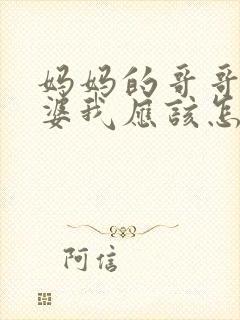 妈妈的哥哥
婆我應該怎
阿信